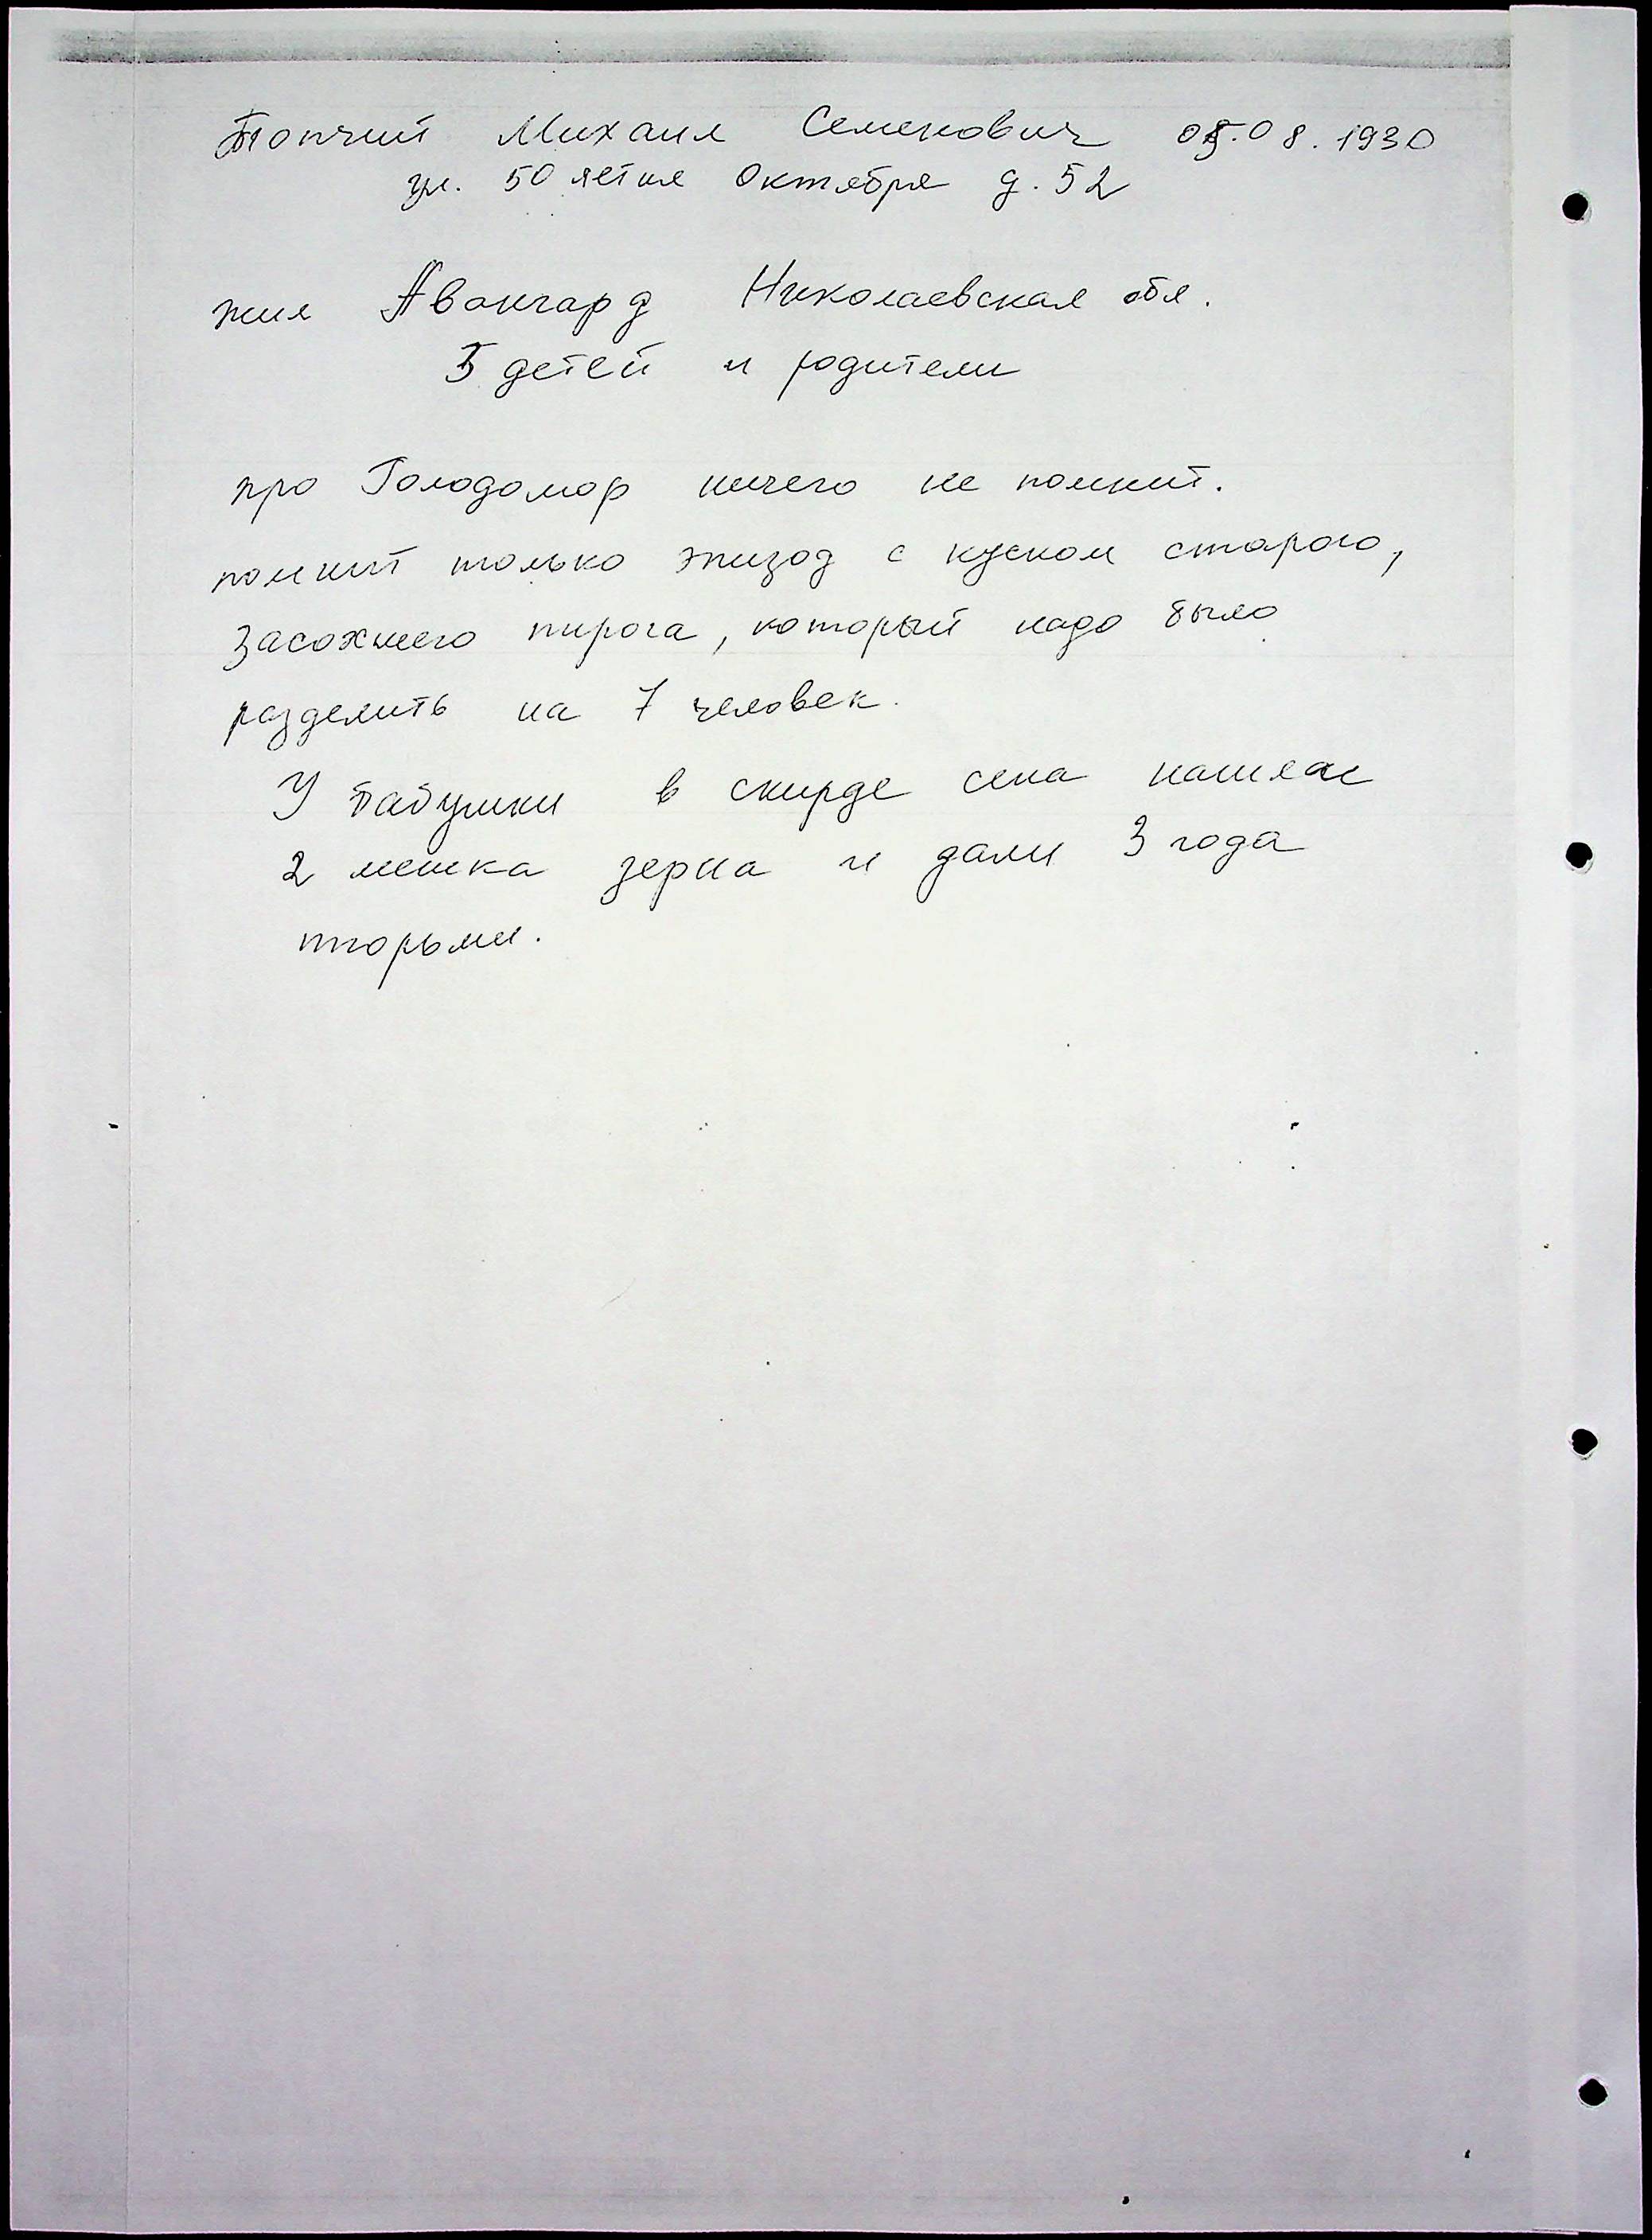 Топчий Михаил Семенович 05.08.1930
ул. 50 летия Октября д. 52
жил Авангард Николаевская обл.
5 детей и родители
про Голодомор ничего не помнит.
помнит только эпизод с куском старого,
засохшего пирога, который надо было
разделить на 7 человек.
У бабушки в скирде сена нашлас
2 мешка зерна и дали 3 года
тюрьми.